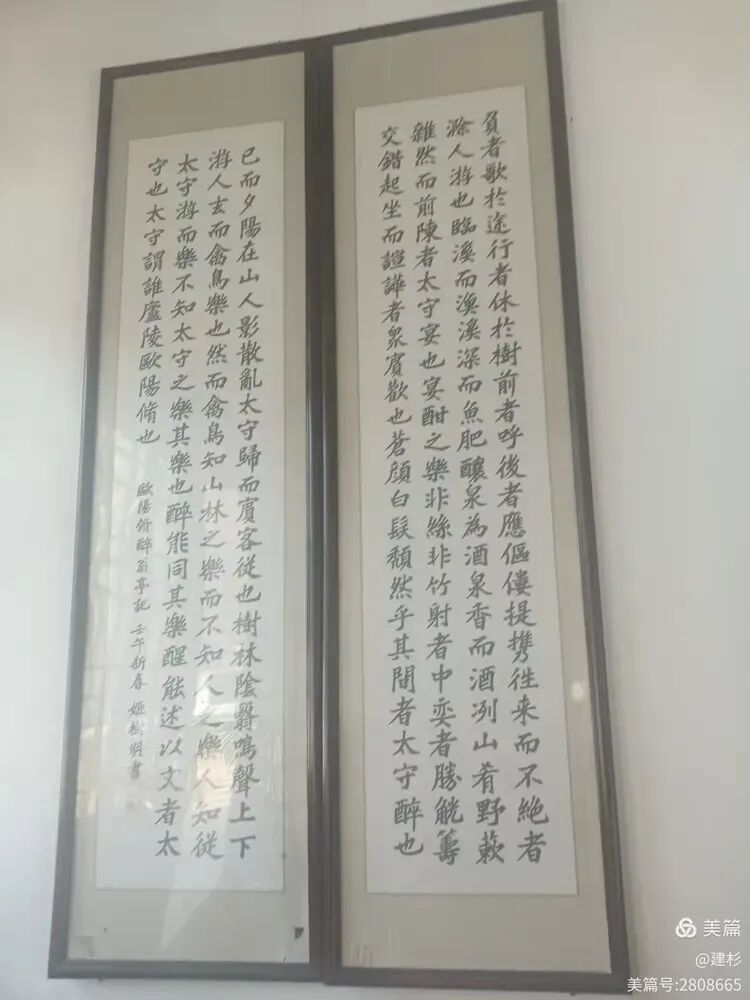 負者歌於途行者休於樹前者呼後者應傴僂提携往来而不絶者
滁人游也臨溪而漁溪深而魚肥釀泉為酒泉香而酒冽山肴野蔌
雜然而前陳者太守宴也宴酣之樂非絲非竹射者中奕者勝觥籌
交錯起坐而諠譁者衆賓歡也蒼顔白髮頹然乎其間者太守醉也
已而夕陽在山人影散亂太守歸而賓客從也樹林陰翳鳴聲上下
游人去而禽鳥樂也然而禽鳥知山林之樂而不知人之樂人知従
太守游而樂不知太守之樂其樂也醉能同其樂醒能述以文者太
守也太守謂誰廬陵歐陽脩也
歐陽脩醉翁亭記 壬午新春 姬樹明書
美篇
@建杉
美篇号:2808665